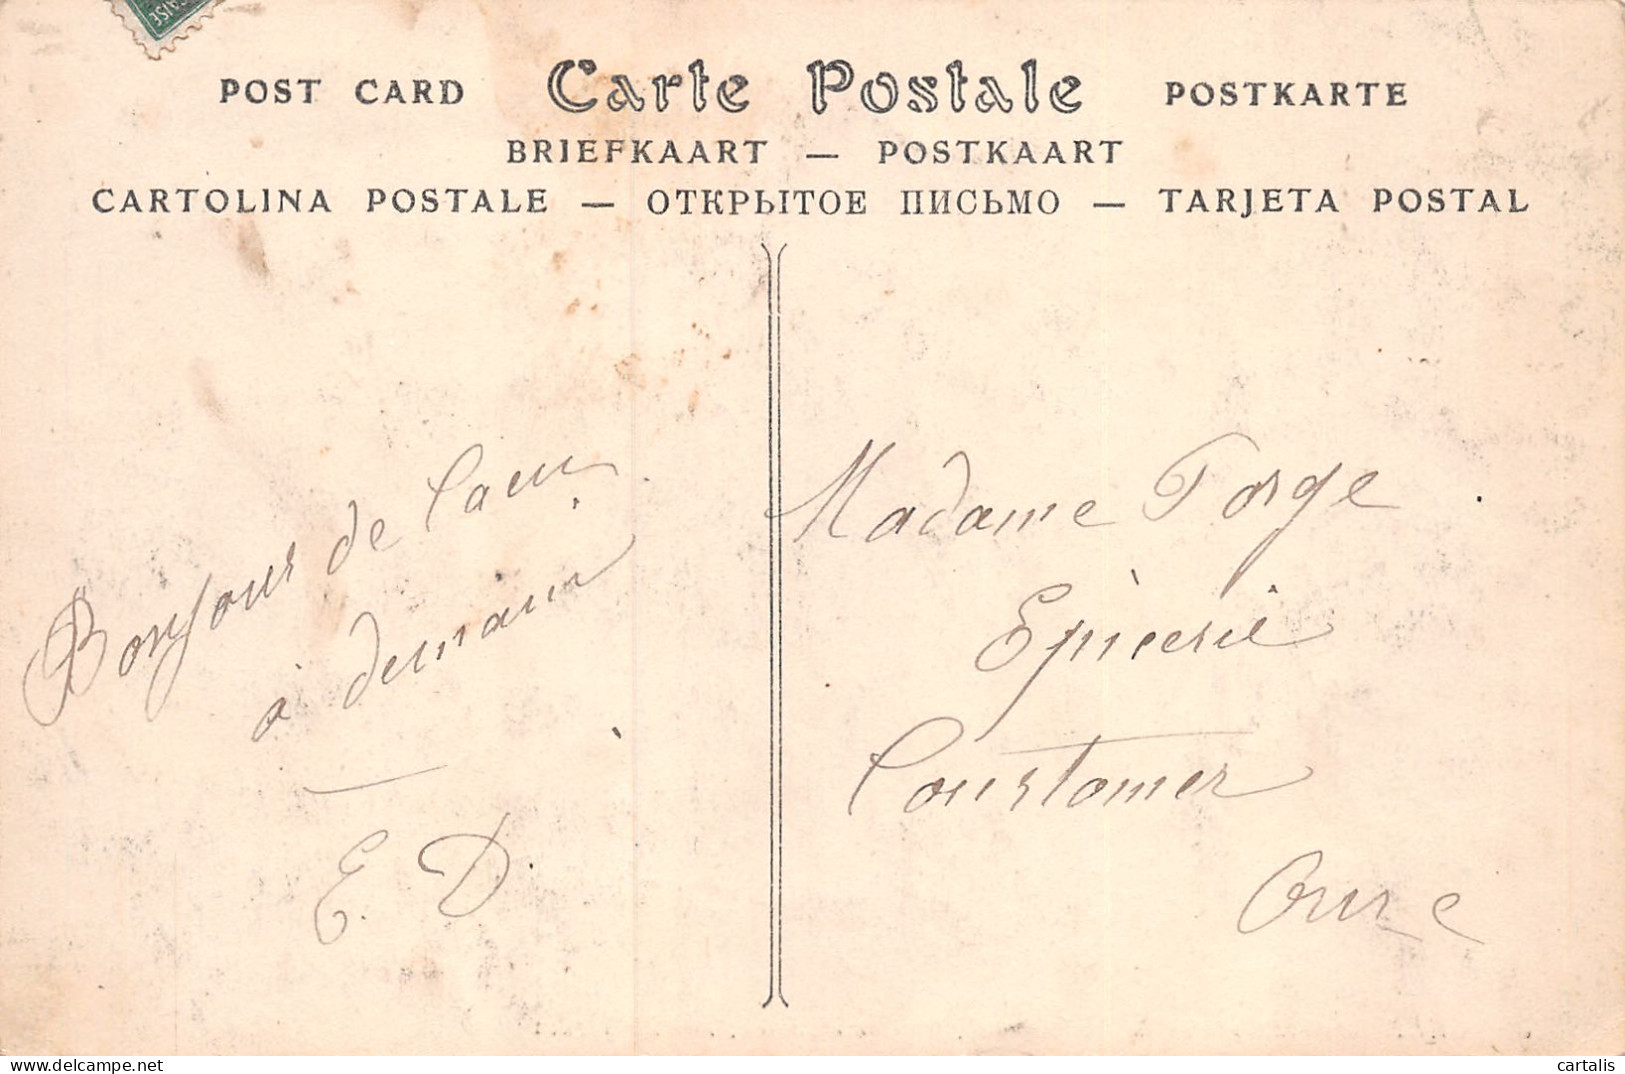 POST CARD Carte Postale POSTKARTE
BRIEFKAART — POSTKAART
CARTOLINA POSTALE — ОТКРЫТОЕ ПИСЬМО — TARJETA POSTAL
Bonjour de Caen
à demain
E. D.
Madame Forge
Epicerie
Coustomer
Orne
cartalis